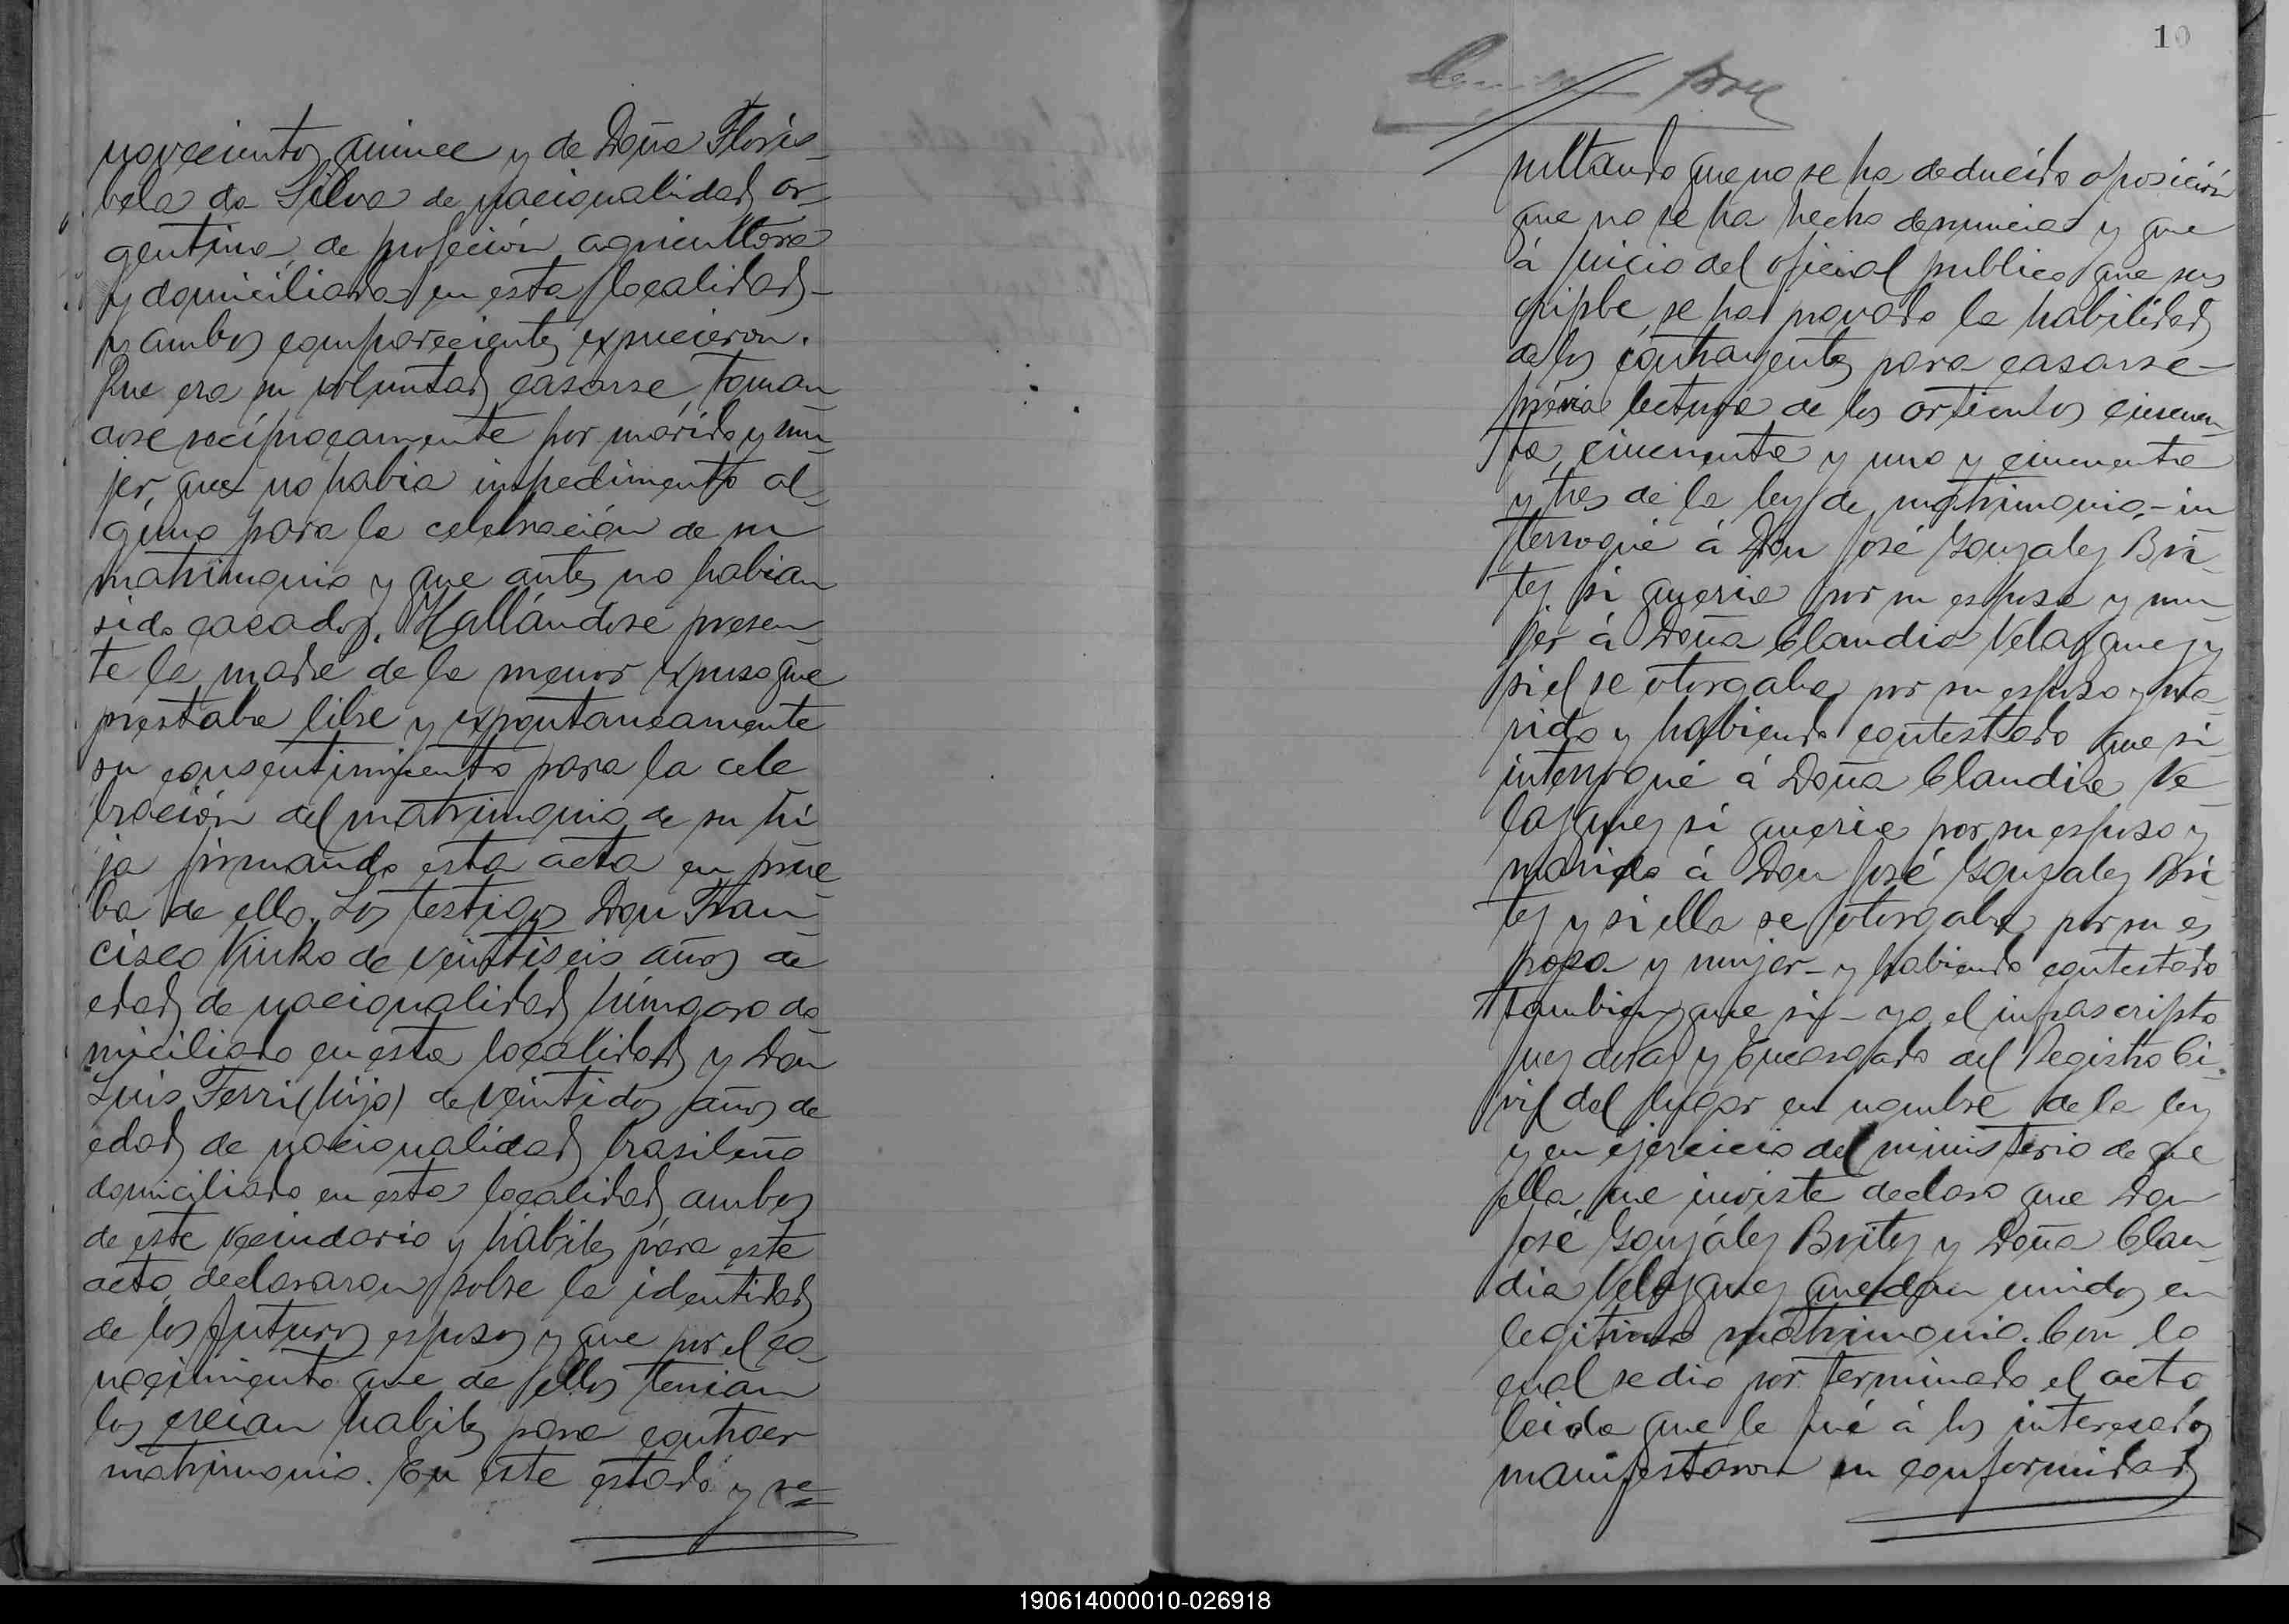 novecientos quince y de Doña Floris-
bela da Silva de nacionalidad ar-
gentina, de profeción agricultora
y domiciliada en esta localidad-
y ambos compareciente, expucieron.
Que era su voluntad casarse, toman
dose recíprocamente por marido y mu-
jer, que no habia impedimento al-
guno para la celebración de su
matrimonio y que antes no habian
sido casados. Hallándose presen-
te la madre de la menor expuso que
prestaba libre y expontaneamente
su consentimiento para la cele
bración del matrimonio de su hi
ja firmando esta acta en prue
ba de ello. Los testigos Don Fran-
cisco Kinko de veintiseis años de
edad, de nacionalidad húngaro do-
miciliado en esta localidad y Don
Luis Ferri (hijo) de veintidos años de
edad, de nacionalidad brasileña
domiciliado en esta localidad, ambos
de este vecindario y hábiles para este
acto, declararon sobre la identidad
de los futuros esposos y que por el co-
nocimiento que de ellos tenian
los creian habiles para contraer
matrimonio. En este estado y re=
10
sultando que no se ha deducido oposición
que no se ha hecho denuncia y que
á juicio del oficial publico que sus
cripbe, se ha provado la habilidad
de los contrayentes para casarse-
prévia lectura de los articulos cincuen-
ta, cincuenta y uno y cincuenta
y tres de la ley de matrimonio,- in
terrogué á Don José Gonzalez Bri-
tez si queria por su esposa y mu-
jer á Doña Claudia Velazquez y
si el se otorgaba por su esposo y ma-
rido y habiendo contestado que si
interrogué á Doña Claudia Ve-
lazquez si queria por su esposo y
marido á Don José Gonzalez Bri
tez y si ella se otorgaba por su es
posa y mujer- y habiendo contestado
tambien que si- yo, el infrascripto
Juez de Paz y Encargado del Registro Ci-
vil del lugar en nombre de la ley
y en ejercicio del ministerio de que
ella me inviste declaro que Don
José González Britez y Doña Clau-
dia Velazquez quedan unidos en
legitimo matrimonio. Con lo
cual se dió por terminado el acto
leida que le fué á los interesados
manifestaron su conformidad
190614000010-026918